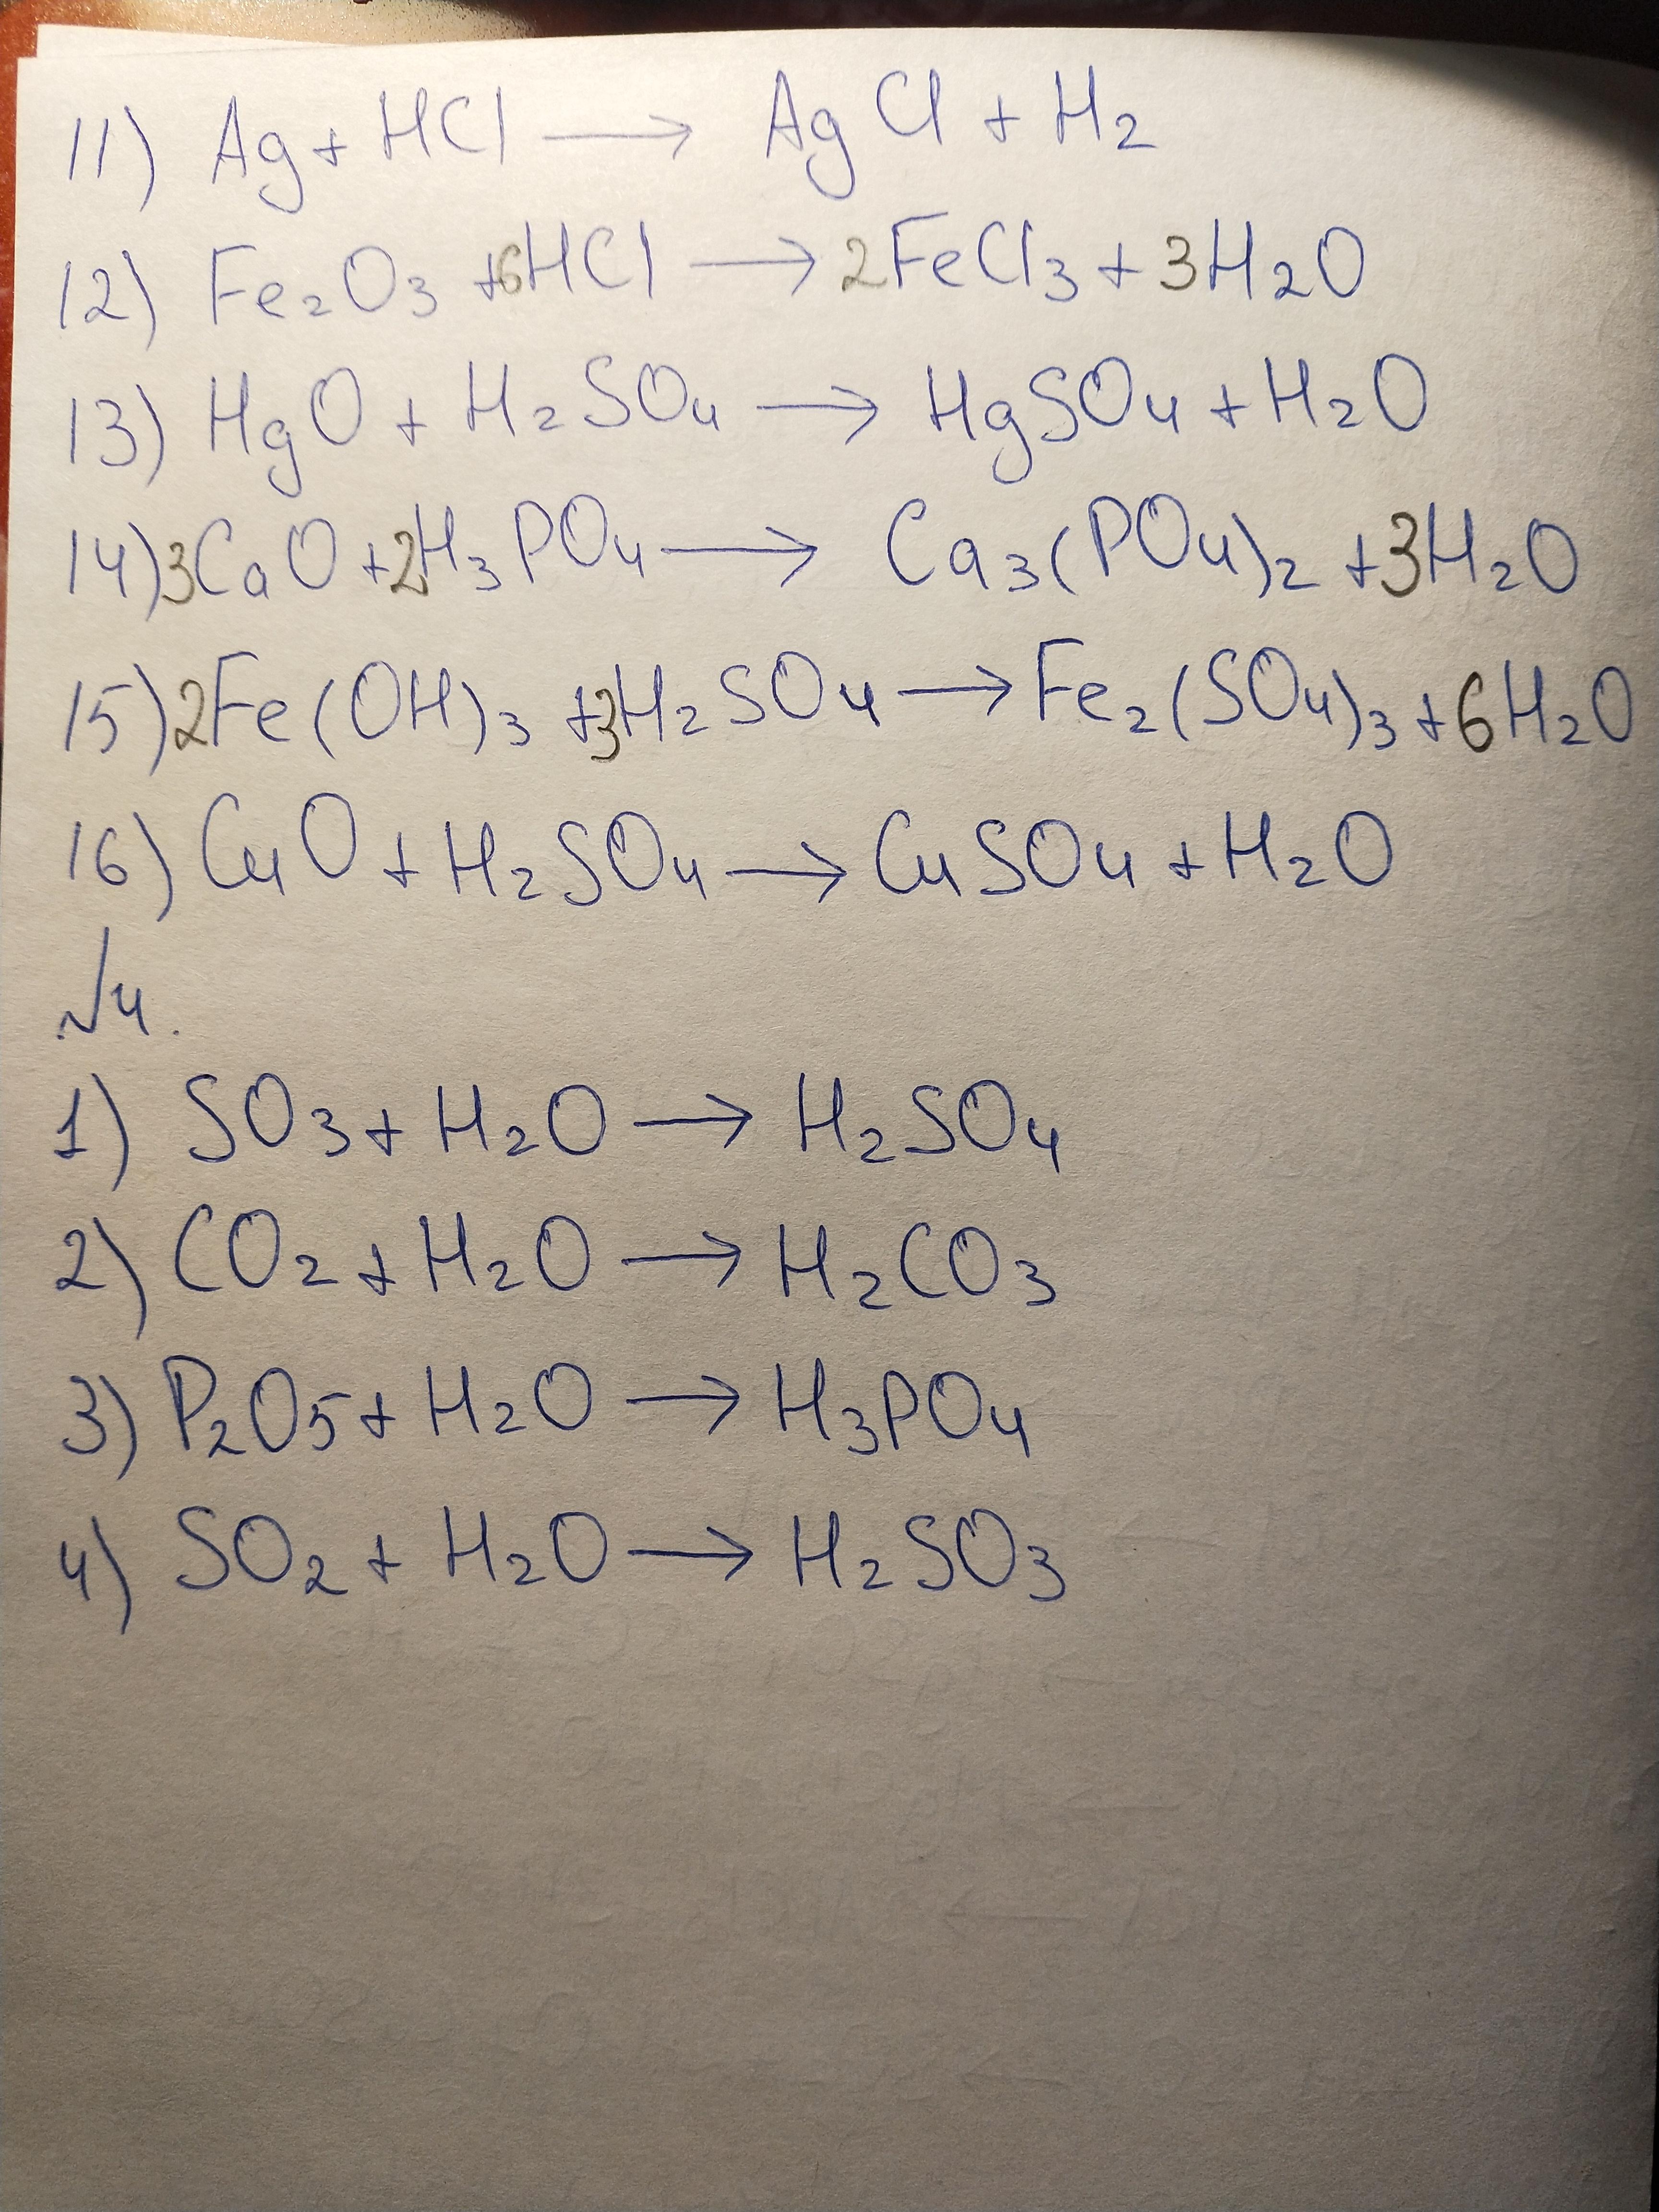 11) Ag + HCl → AgCl + H2
12) Fe2O3 + 6HCl → 2FeCl3 + 3H2O
13) HgO + H2SO4 → HgSO4 + H2O
14) 3CaO + 2H3PO4 → Ca3(PO4)2 + 3H2O
15) 2Fe(OH)3 + 3H2SO4 → Fe2(SO4)3 + 6H2O
16) CuO + H2SO4 → CuSO4 + H2O
№4.
1) SO3 + H2O → H2SO4
2) CO2 + H2O → H2CO3
3) P2O5 + H2O → H3PO4
4) SO2 + H2O → H2SO3